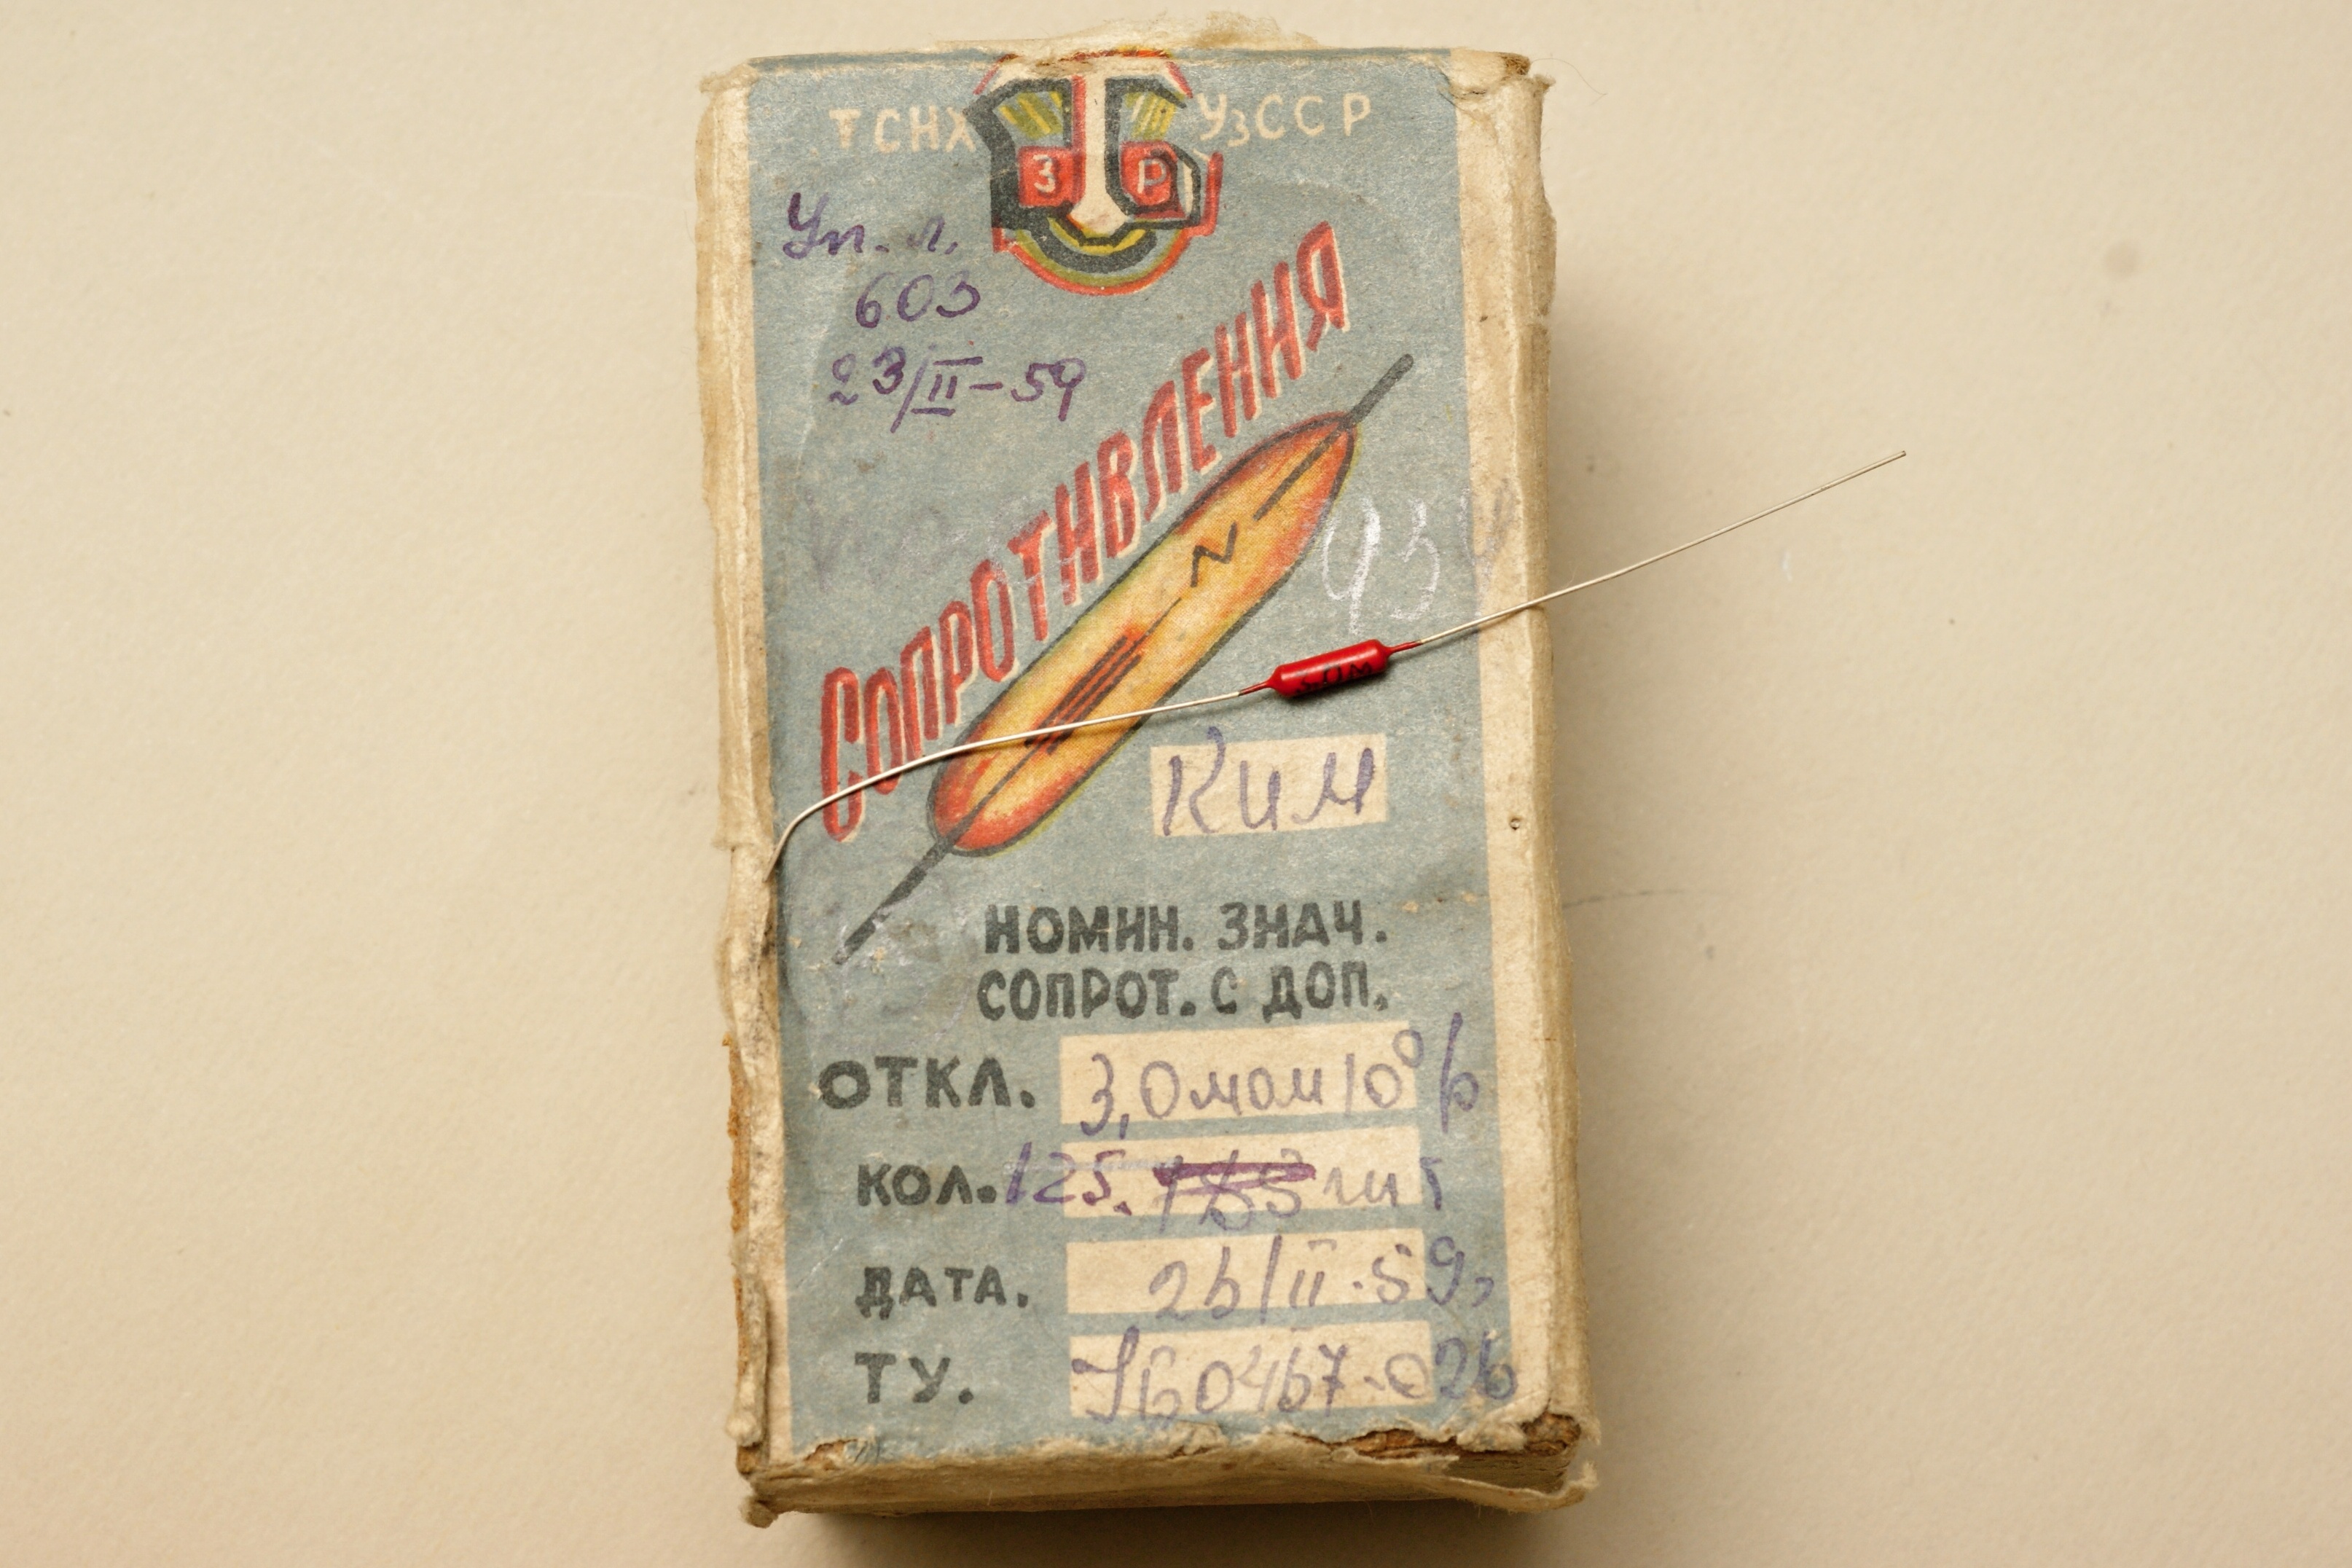 ТСНХ УзССР
З Т Р
Уп. л.
603
23/II-59
СОПРОТИВЛЕНИЯ
КИМ
3.0М
НОМИН. ЗНАЧ.
СОПРОТ. С ДОП.
ОТКЛ. 3,0 мом 10%
КОЛ. 125. шт
ДАТА. 25/II-59,
ТУ.